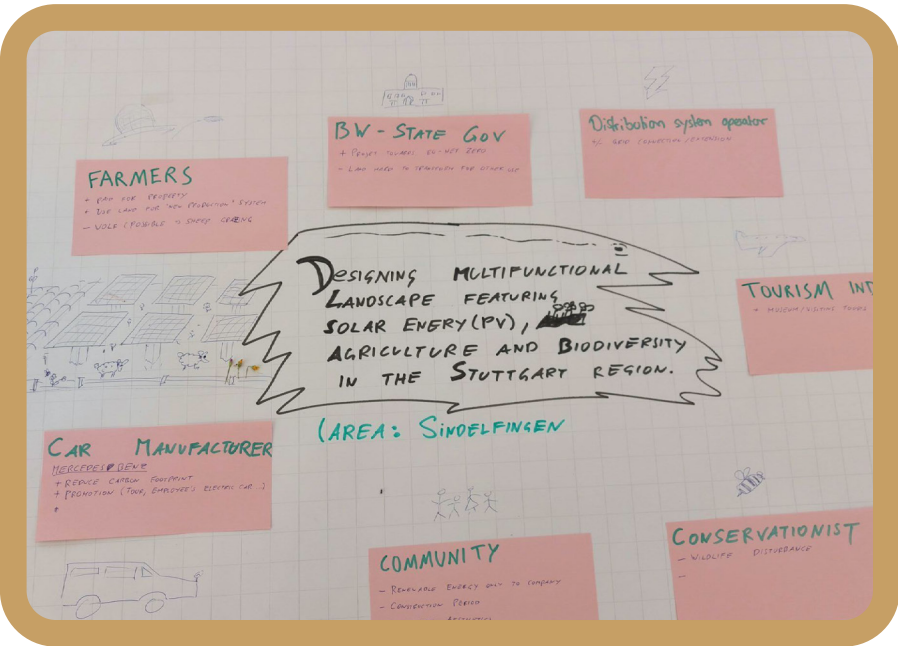 BW-STATE GOV
+ PUSHES TOWARDS NET ZERO
- LAND USED TO TRANSFORM FOR OTHER USE
Distribution system operator
+/- GRID CONNECTION/EXTENSION
FARMERS
+ PAID FOR PROPERTY
+ USE LAND FOR PRODUCTION" SYSTEM
- (POSSIBLE SHEEP GRAZING
DESIGNING MULTIFUNCTIONAL
LANDSCAPE FEATURING
SOLAR ENERY (PV),
AGRICULTURE AND BIODIVERSITY
IN THE STUTTGART REGION.
(AREA: SINDELFINGEN
TOURISM IND
+ TOURS
CAR MANUFACTURER
MERCEDES BENZ
+ REDUCE CARBON FOOTPRINT
+ PROMOTION (TOUR, EMPLOYEE'S ELECTRIC CAR..)
+
COMMUNITY
- RENEWABLE ENERGY ONLY TO COMPANY
- CONSTRUCTION PERIOD
AESTHETICS
CONSERVATIONIST
- WILDLIFE DISTURBANCE
-